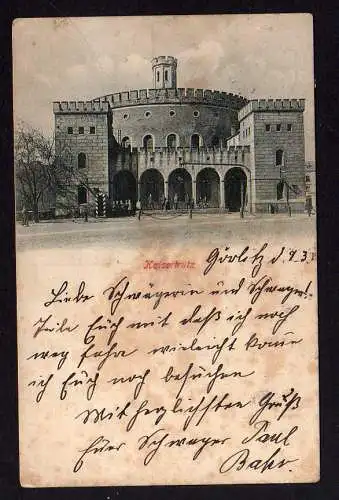 Kaisertrutz
Görlitz d. 9.3.
Liebe Schwägerin und Schwager!
Teile Euch mit daß ich noch
weg fahre vieleicht kome
ich Euch noch besuchen
Mit herzlichsten Gruß
Euer Schwager Paul
Bahr